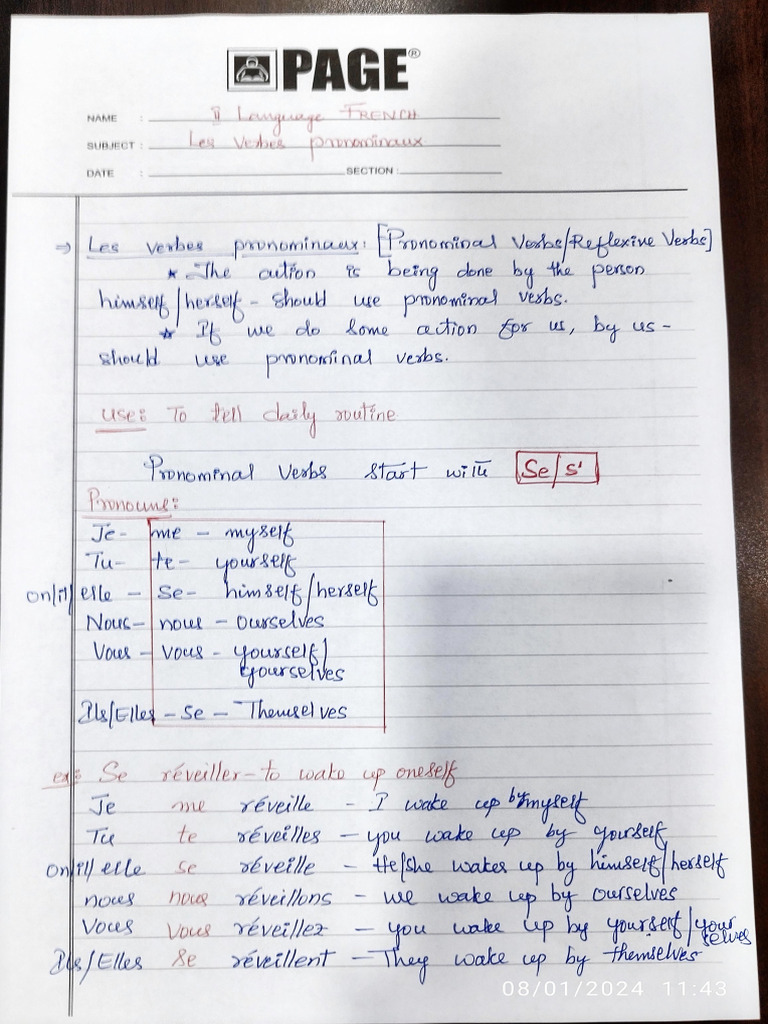 PAGE®
NAME : II Language FRENCH
SUBJECT : Les Verbes pronominaux
DATE : SECTION :
⇒ Les verbes pronominaux: [Pronominal Verbs/Reflexive Verbs]
* The action is being done by the person
himself/herself - should use pronominal verbs.
* If we do some action for us, by us -
should use pronominal verbs.
Use: To tell daily routine
Pronominal Verbs start with Se/s'
Pronouns:
Je - me - myself
Tu - te - yourself
on/il/elle - se - himself/herself
Nous - nous - ourselves
Vous - vous - yourself/
yourselves
Ils/Elles - se - Themselves
ex: Se réveiller - to wake up oneself
Je me réveille - I wake up by myself
Tu te réveilles - you wake up by yourself
on/il/elle se réveille - He/she wakes up by himself/herself
nous nous réveillons - we wake up by ourselves
Vous vous réveillez - you wake up by yourself/your
selves
Ils/Elles se réveillent - They wake up by themselves
08/01/2024 11:43